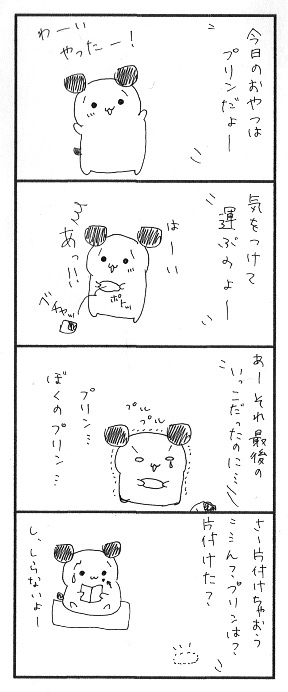 今日のおやつは
プリンだよー
わーい
やったー!
気をつけて
運ぶのよー
はーい
ポトッ
あっ!!
ベチャッ
あーそれ最後の
いっこだったのに…
プル
プル
プリン…
ぼくのプリン…
さー片付けちゃおう
ここん?プリンは?
片付けた?
し、しらないよー